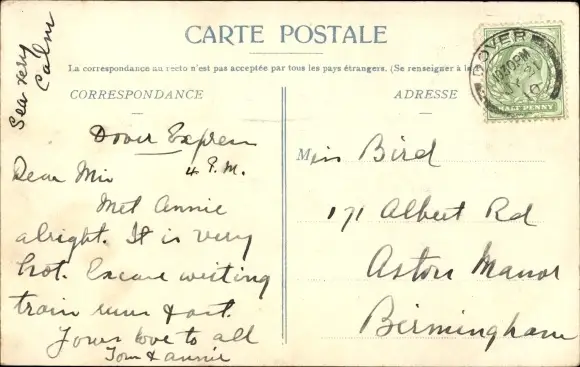 Sea very
Calm
CARTE POSTALE
La correspondance au recto n'est pas acceptée par tous les pays étrangers. (Se renseigner à le
CORRESPONDANCE
Dover Express
4 P.M.
Dear Miss
Met Annie
alright. It is very
hot. Excuse writing
train runs fast.
Yours love to all
Tom & Annie
ADRESSE
Miss Bird
171 Albert Rd
Aston Manor
Birmingham
DOVER
HALF PENNY